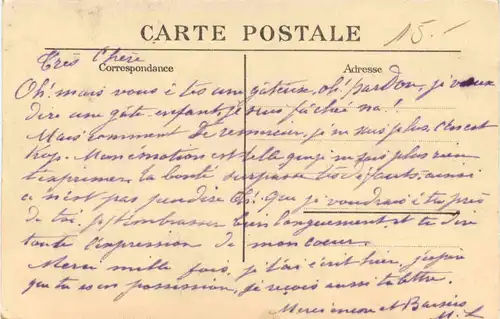 CARTE POSTALE
15.-
Très Chère
Correspondance
Adresse
Oh! mais vous êtes une gâteuse, oh! pardon, je veux
dire une gâte-enfant, je suis fâché na!
Mais comment te remercier, je ne sais plus, c'est
trop. Mon émotion est telle que je ne sais plus rien
exprimer. Ta bonté surpasse tes aussi
ce n'est pas peu dire Oh! Que je voudrais être près
de toi pr t'embrasser bien longuement et te dire
toute l'expression de mon coeur.
Merci mille fois, je t'ai écrit hier, j'espère
que tu es en possession, je reçois aussi ta lettre.
Merci encore et Baisers